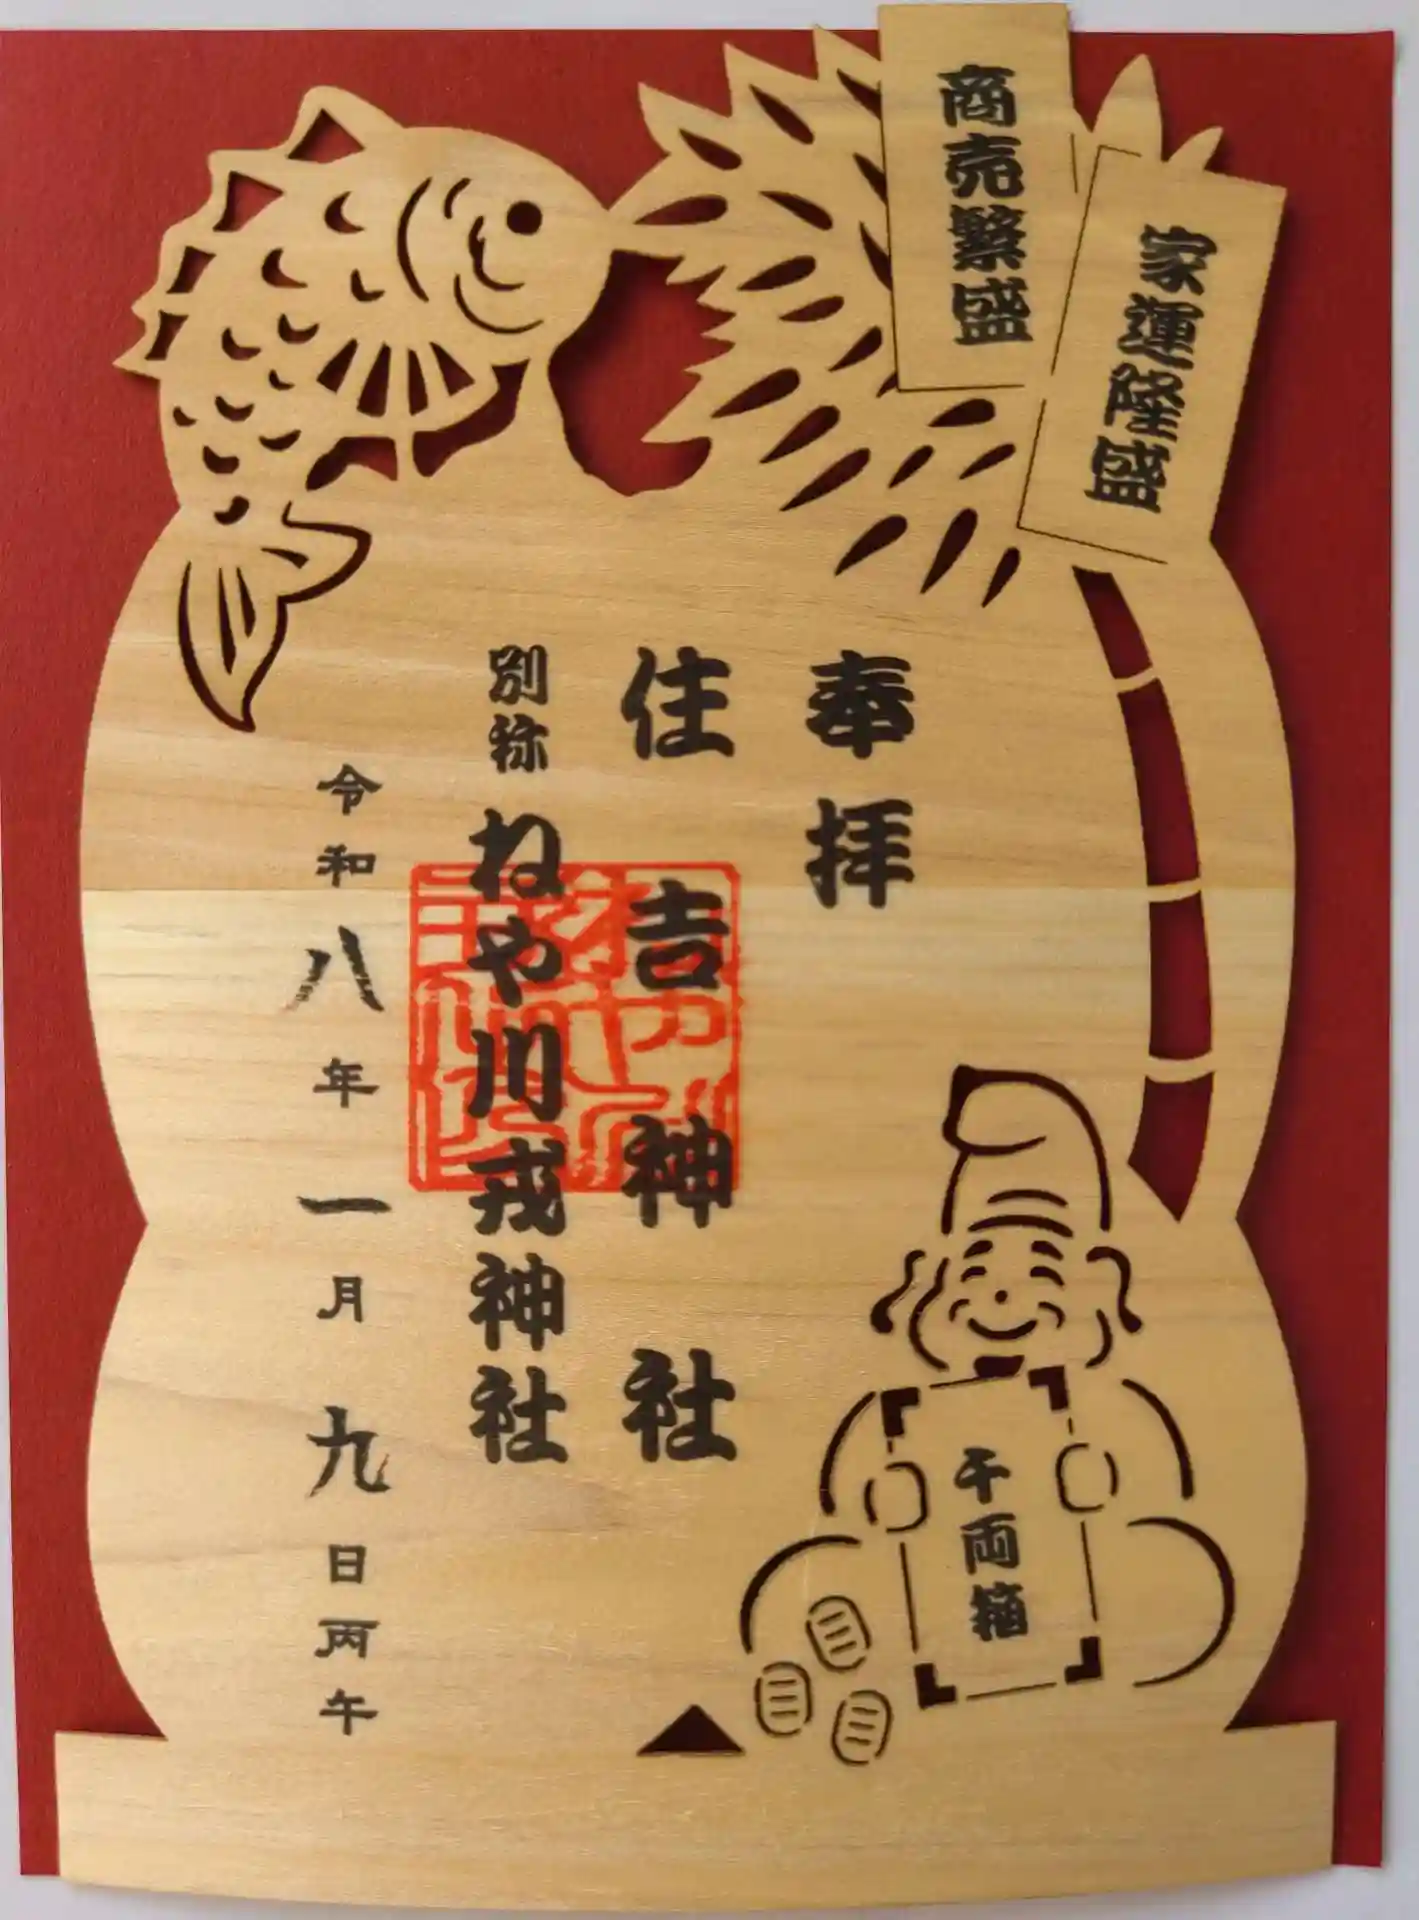 商売繁盛
家運隆盛
奉拝
住吉神社
別称 ねや川戎神社
令和八年一月九日丙午
千両箱